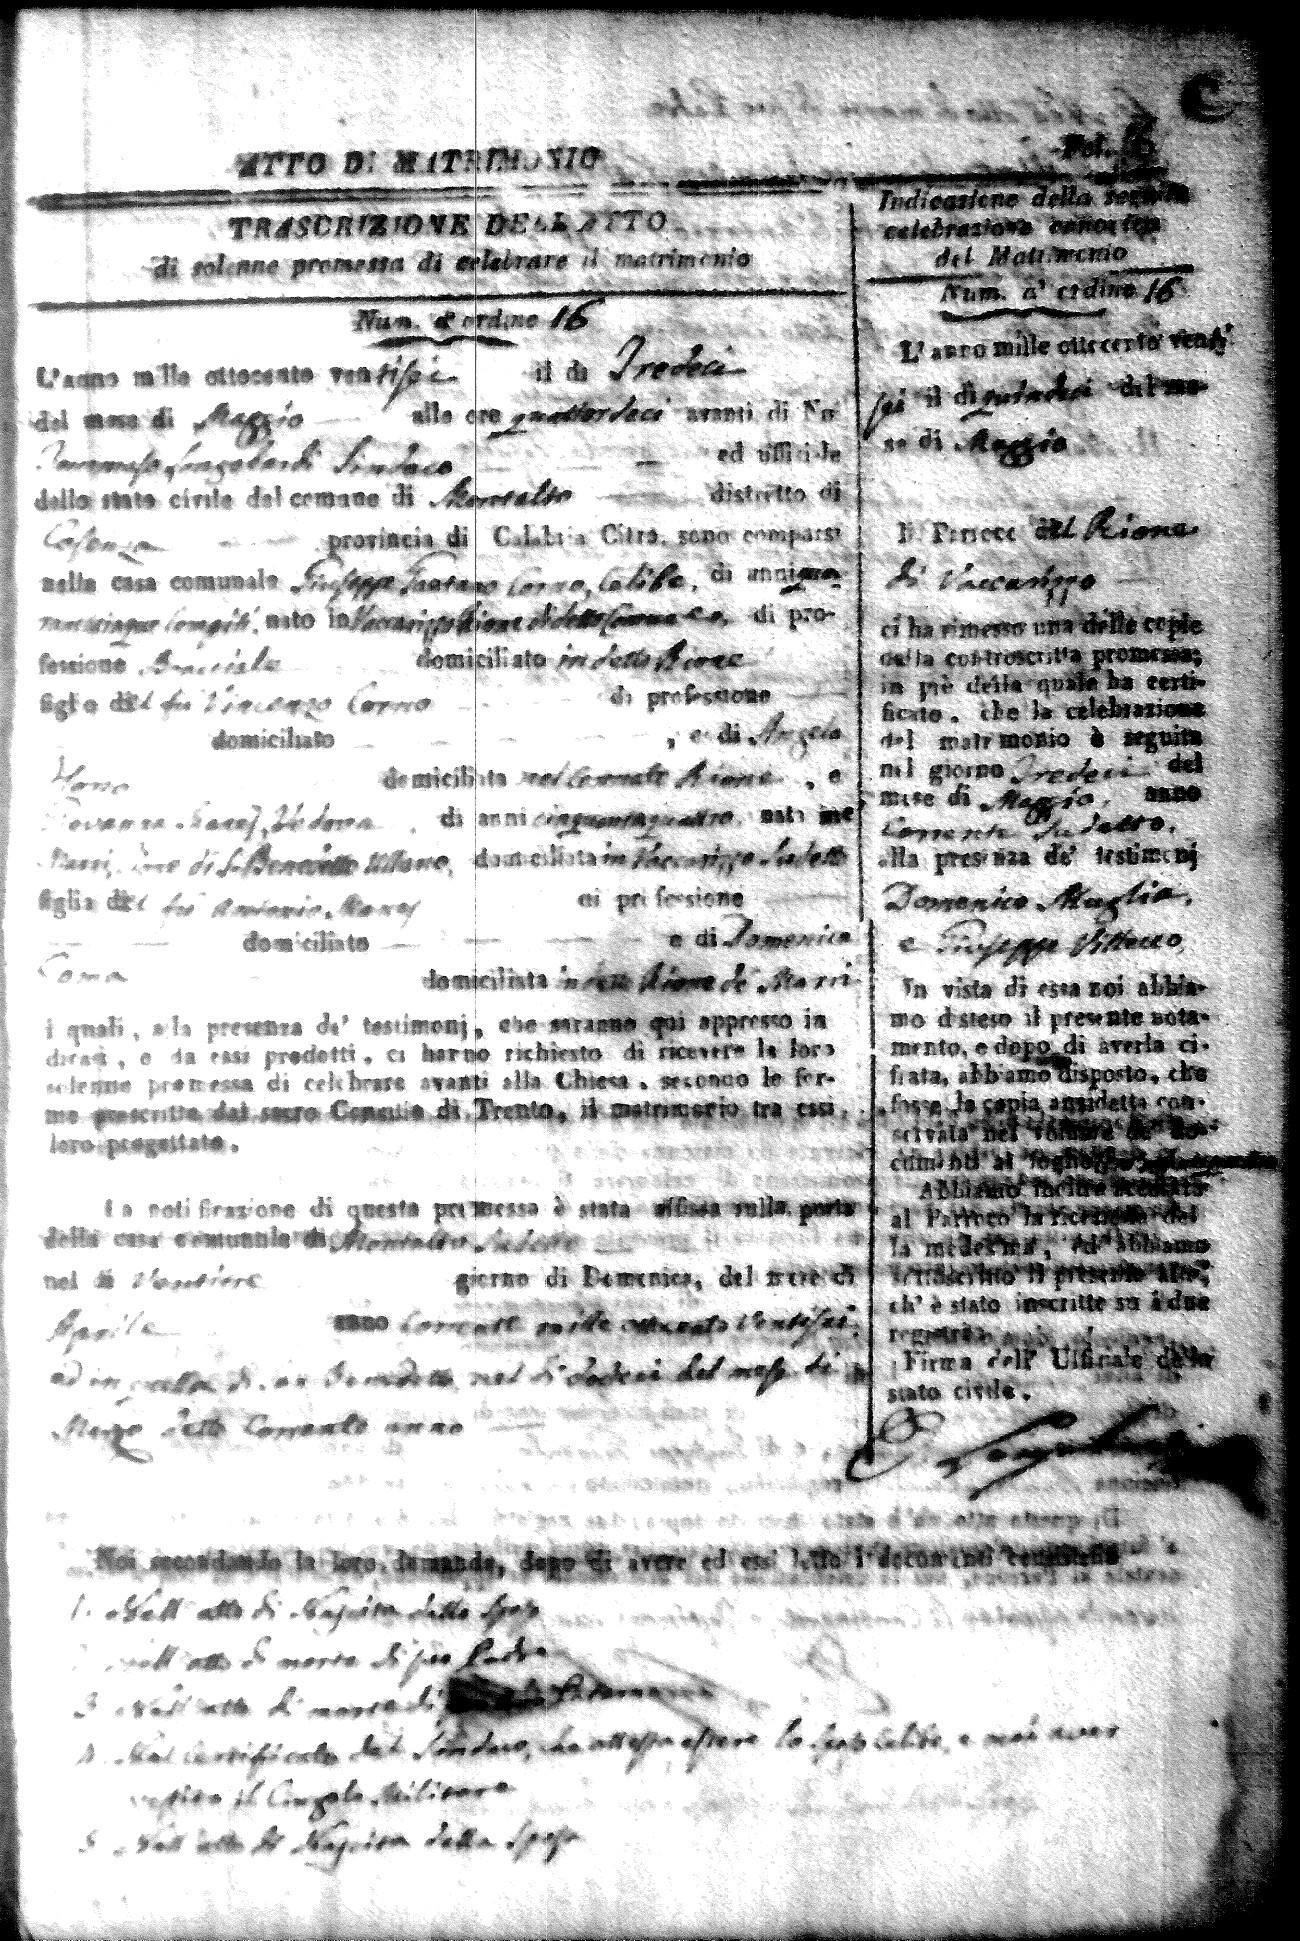 ATTO DI MATRIMONIO
Fol.
TRASCRIZIONE DELL'ATTO
di solenne promessa di celebrare il matrimonio
Num. d'ordine 16
L'anno mille ottocento ventisei il di Tredeci
del mese di Maggio alle ore quattordeci avanti di Noi
Tommaso Sindaco ed ufficiale
dello stato civile del comune di Montalto distretto di
Cosenza provincia di Calabria Citra, sono comparsi
nella casa comunale Giuseppe Gaetano Corno, Celibe, di anni qua-
rantacinque compiti, nato in Vaccarizzo Rione di detto Comune, di pro-
fessione Bracciale domiciliato in detto Rione
figlio del fu Vincenzo Corno di professione
domiciliato , e di Angela
domiciliata nel Cennato Rione, e
Vedova, di anni cinquantaquattro, nata ne
Marri, Rione di S. Benedetto Ullano, domiciliata in Vaccarizzo sudetto
figlia del fu Antonio di professione
domiciliato e di Domenica
domiciliata in Rione de' Marri
i quali, alla presenza de' testimonj, che saranno qui appresso in
dicati, e da essi prodotti, ci hanno richiesto di ricevere la loro
solenne promessa di celebrare avanti alla Chiesa, secondo le for-
me prescritte dal sacro Concilio di Trento, il matrimonio tra essi
loro progettato.
La notificazione di questa promessa è stata affissa sulla porta
della casa comunale di Montalto sudetto
nel di Ventitre giorno di Domenica, del mese di
Aprile anno Corrente mille ottocento ventisei,
ed in quella di San Benedetto nel di dodeci del mese di
Marzo detto Corrente anno
Noi secondando la loro domanda, dopo di avere ed essi letto i documenti consistenti
1. Nell'atto di Nascita dello Sposo
Nell'atto di morte di suo Padre
3. Nell'atto di morte di
4. Nel Certificato del Sindaco, che attesta essere lo Sposo Celibe, e mai aver
il Cingolo Militare
5. Nell'atto di Nascita della Sposa
Indicazione della seguita
celebrazione canonica
del Matrimonio
Num. d'ordine 16
L'anno mille ottocento venti
sei il di quindeci del me-
se di Maggio
Il Parroco del Rione
di Vaccarizzo
ci ha rimesso una delle copie
della controscritta promessa;
in piè della quale ha certi-
ficato, che la celebrazione
del matrimonio è seguita
nel giorno Tredeci del
mese di Maggio, anno
Corrente sudetto,
alla presenza de' testimonj
Domenico Muglia,
e Giuseppe
In vista di essa noi abbia-
mo disteso il presente nota-
mento, e dopo di averla ci-
frata, abbiamo disposto, che
fosse la copia anzidetta con-
servata nel volume de' do-
cumenti al foglio
Abbiamo inoltre accusato
al Parroco la ricezione del
la medesma, ed abbiamo
sottoscritto il presente atto,
ch' è stato inscritto su i due
registri
Firma dell' Ufficiale dello
stato civile.